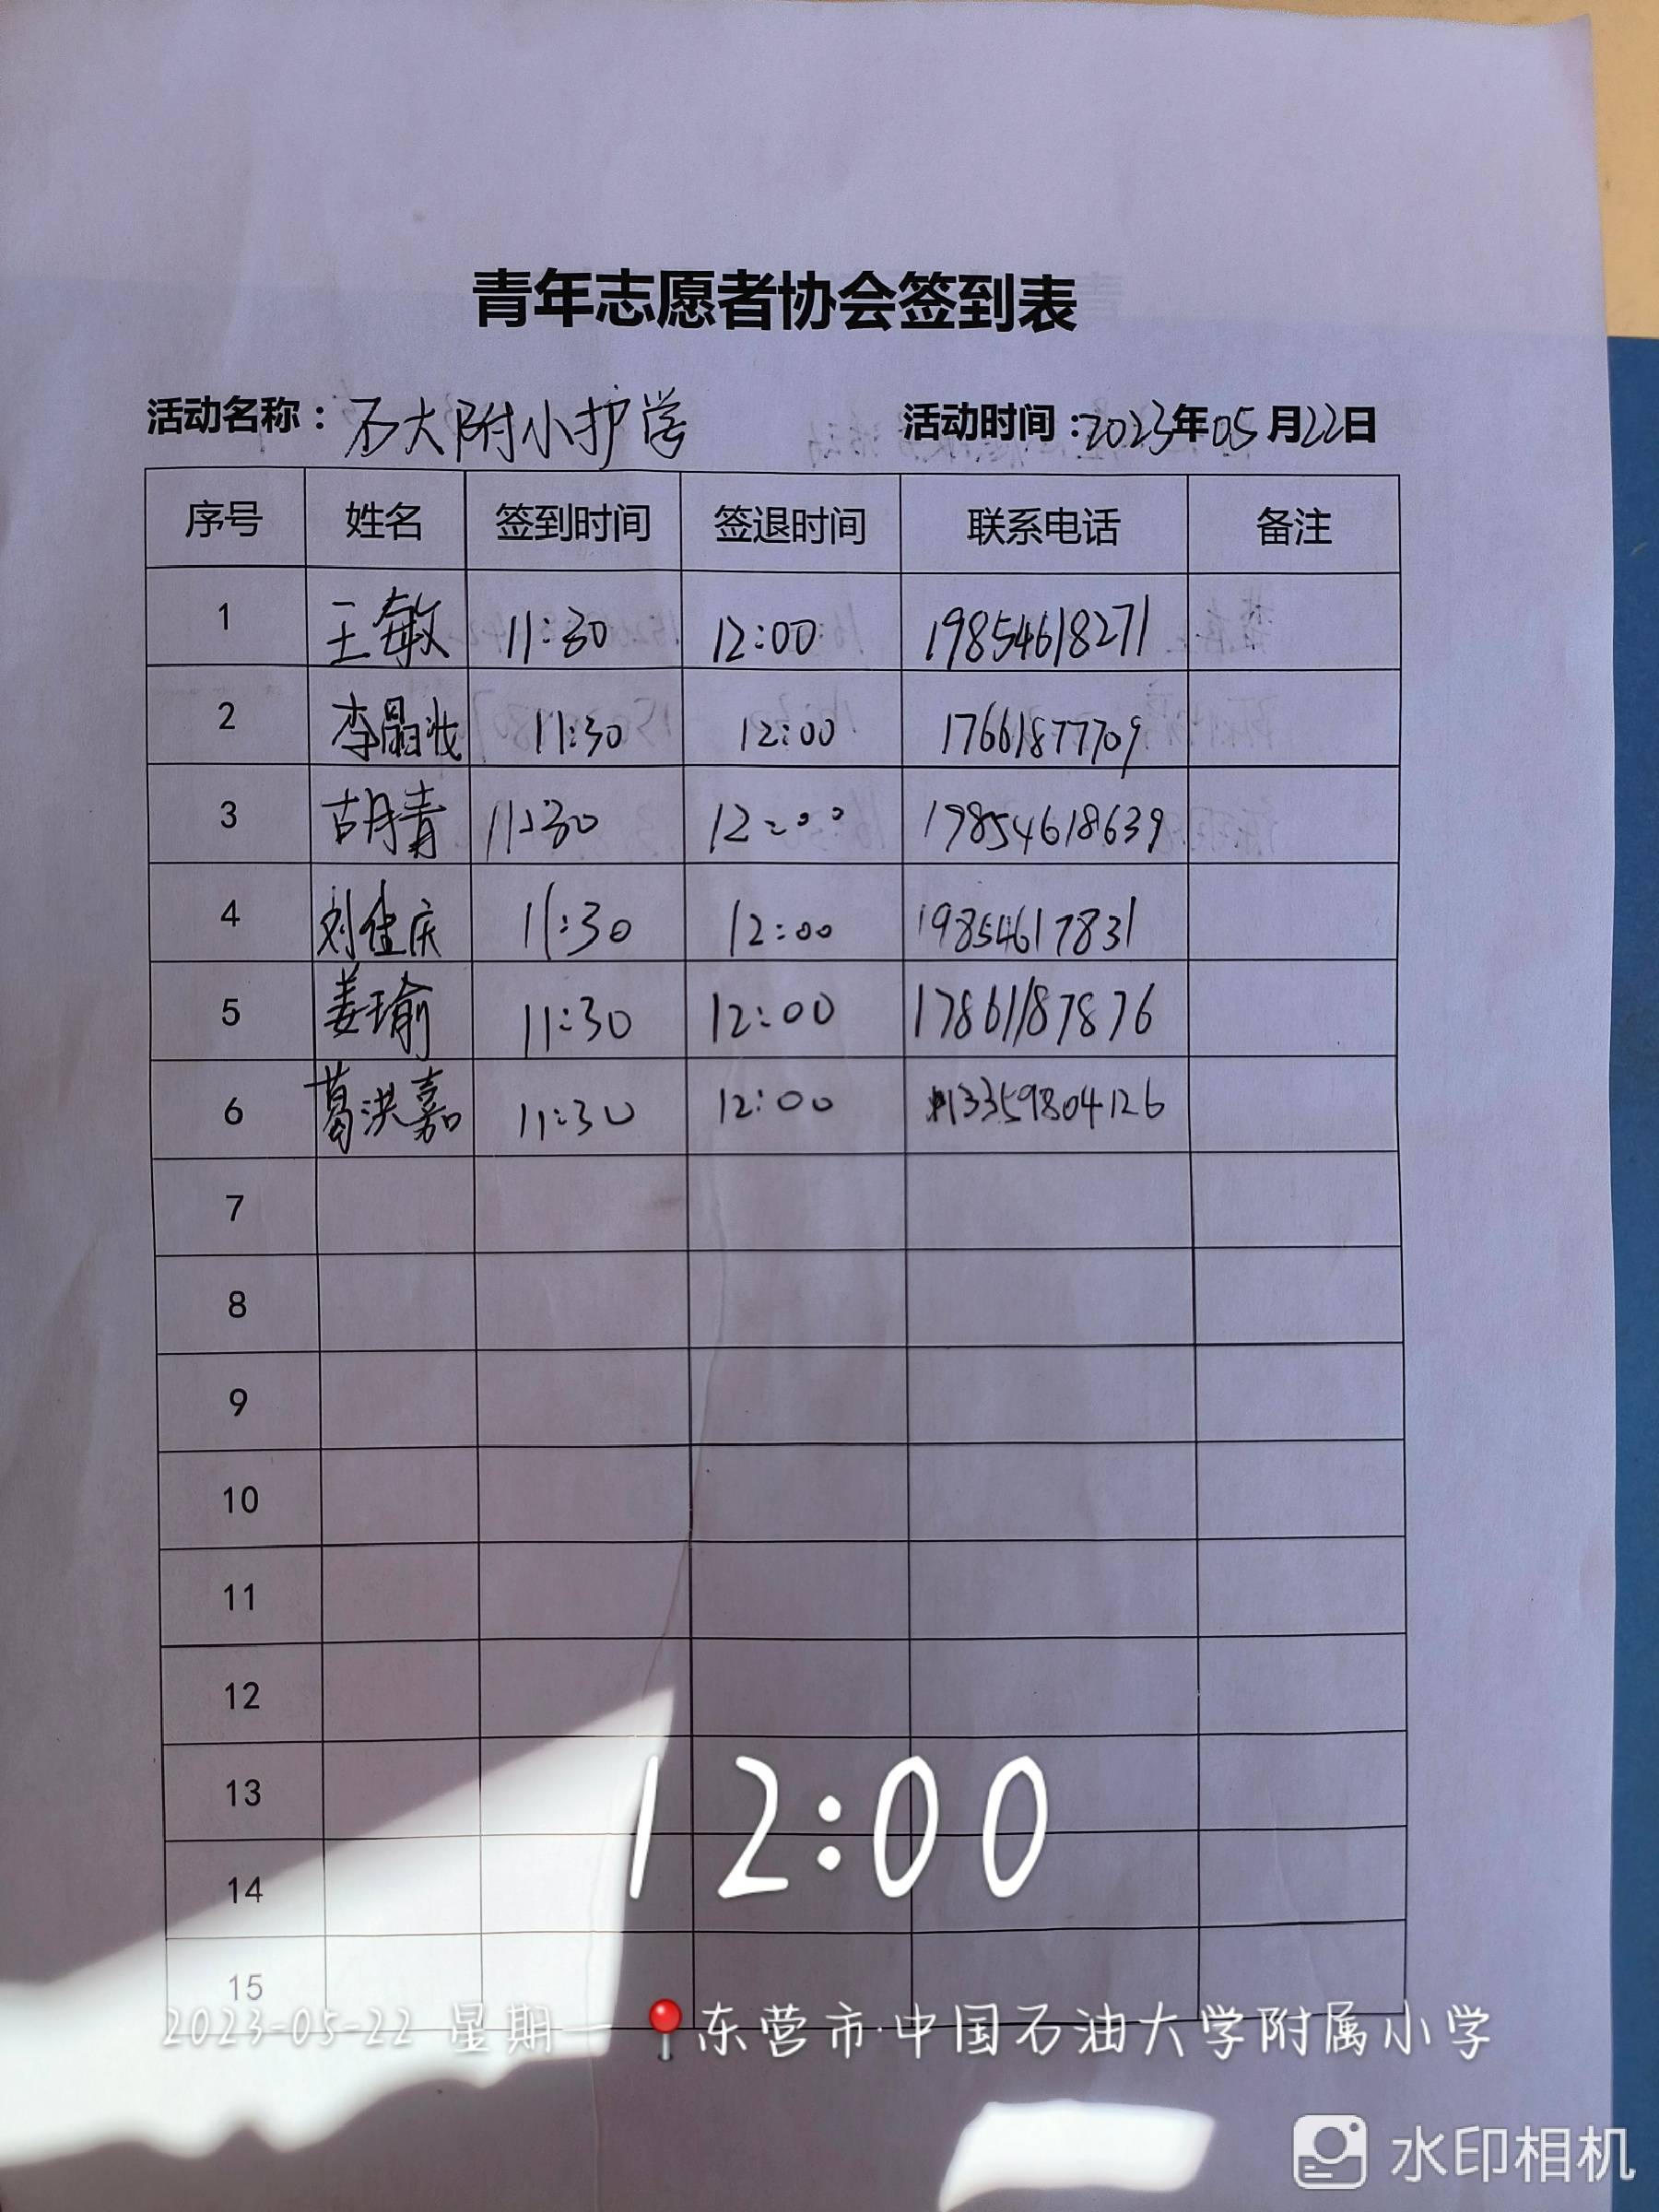 青年志愿者协会签到表
活动名称：石大附小护学 活动时间：2023年05月22日
序号 姓名 签到时间 签退时间 联系电话 备注
1 王敏 11:30 12:00 19854618271
2 李晶妆 11:30 12:00 17661877709
3 胡青 11:30 12:00 19854618639
4 刘佳庆 11:30 12:00 19854617831
5 姜瑜 11:30 12:00 17861187876
6 葛洪嘉 11:30 12:00 13359804126
7
8
9
10
11
12
13
14
15
12:00
2023-05-22 星期一 东营市·中国石油大学附属小学
水印相机